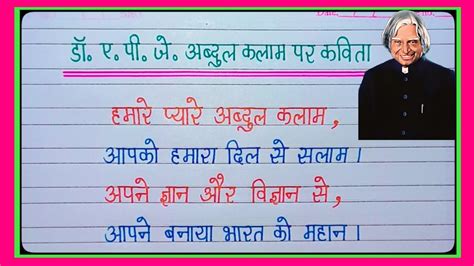 डॉ. ए. पी. जे. अब्दुल कलाम पर कविता
हमारे प्यारे अब्दुल कलाम,
आपको हमारा दिल से सलाम।
अपने ज्ञान और विज्ञान से,
आपने बनाया भारत को महान।